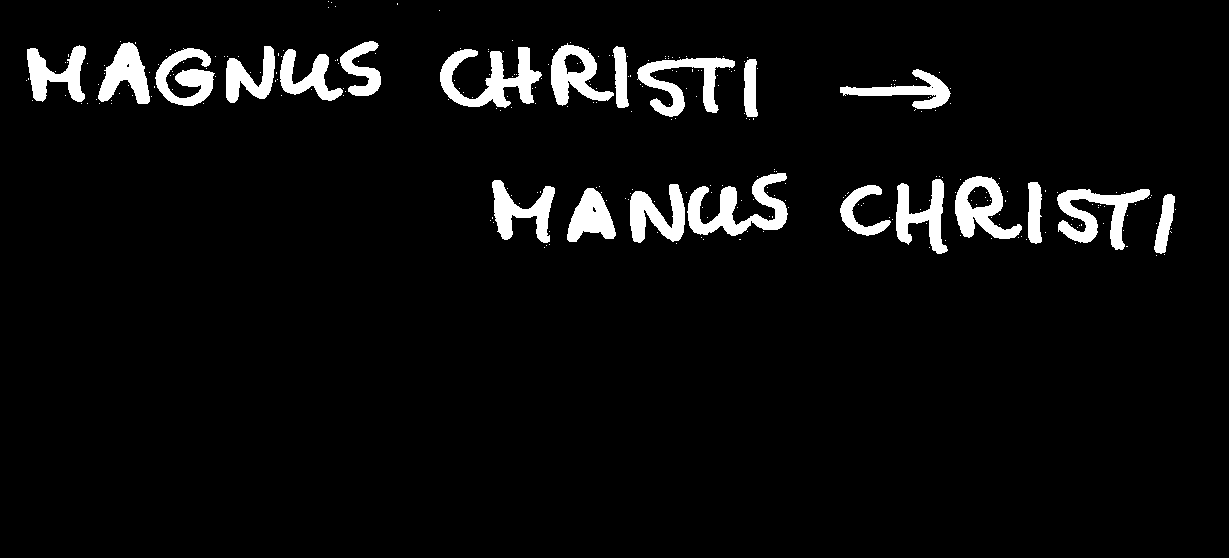 MAGNUS CHRISTI →
MANUS CHRISTI